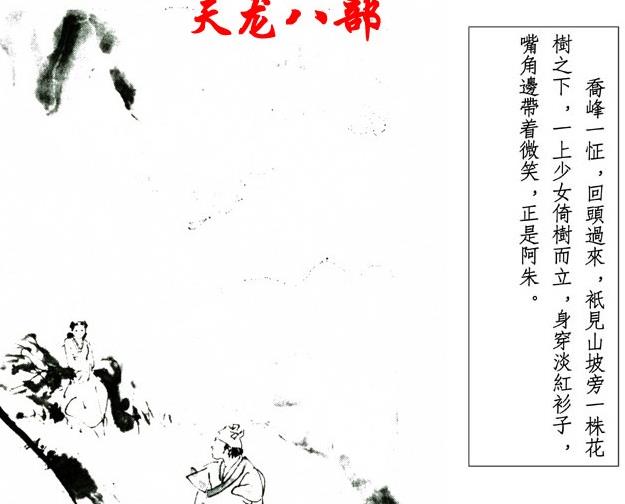 天龙八部
喬峰一怔，回頭過來，衹見山坡旁一株花
樹之下，一上少女倚樹而立，身穿淡紅衫子，
嘴角邊帶着微笑，正是阿朱。